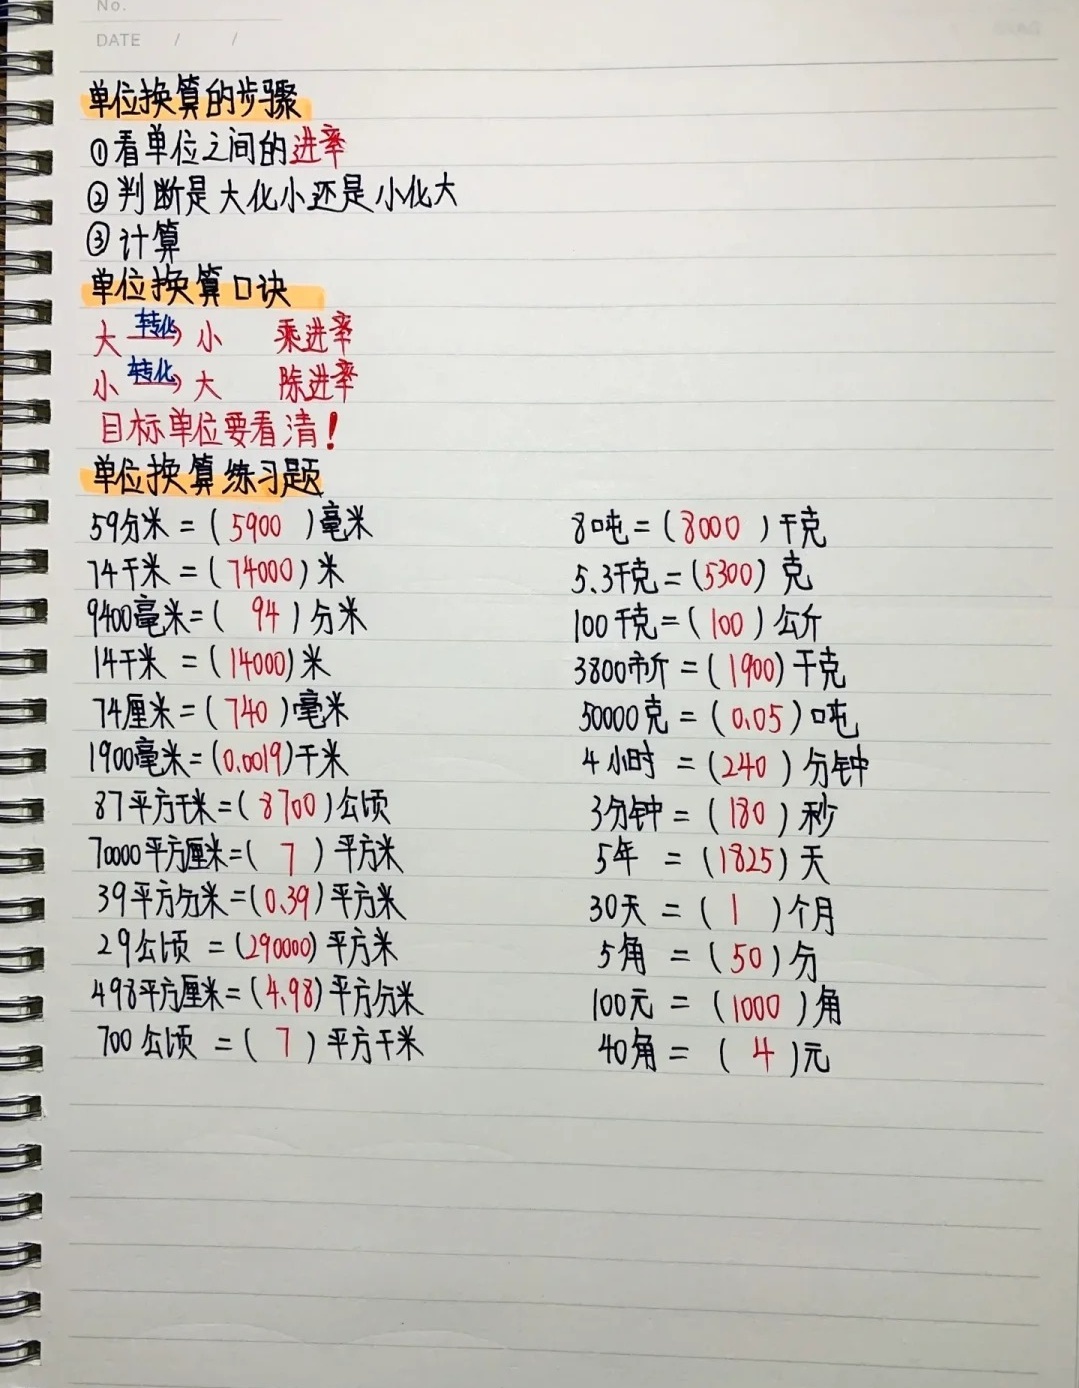 No.
DATE / /
单位换算的步骤
①看单位之间的进率
②判断是大化小还是小化大
③计算
单位换算口诀
大 转化→ 小 乘进率
小 转化→ 大 除进率
目标单位要看清!
单位换算练习题
59分米=(5900)毫米
74千米=(74000)米
9400毫米=(94)分米
14千米=(14000)米
74厘米=(740)毫米
1900毫米=(0.0019)千米
87平方千米=(8700)公顷
70000平方厘米=(7)平方米
39平方分米=(0.39)平方米
29公顷=(290000)平方米
498平方厘米=(4.98)平方分米
700公顷=(7)平方千米
8吨=(8000)千克
5.3千克=(5300)克
100千克=(100)公斤
3800市斤=(1900)千克
50000克=(0.05)吨
4小时=(240)分钟
3分钟=(180)秒
5年=(1825)天
30天=(1)个月
5角=(50)分
100元=(1000)角
40角=(4)元